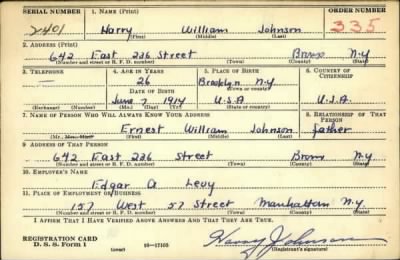 SERIAL NUMBER 1. NAME (Print) ORDER NUMBER
2401 Harry William Johnson 335
(First) (Middle) (Last)
2. ADDRESS (Print)
642 East 236 Street Bronx N.Y
(Number and street or R. F. D. number) (Town) (County) (State)
3. TELEPHONE 4. AGE IN YEARS 5. PLACE OF BIRTH 6. COUNTRY OF CITIZENSHIP
26 Brooklyn N.Y
DATE OF BIRTH (Town or county)
June 7 1914 U.S.A U.S.A.
(Exchange) (Number) (Mo.) (Day) (Yr.) (State or country)
7. NAME OF PERSON WHO WILL ALWAYS KNOW YOUR ADDRESS 8. RELATIONSHIP OF THAT PERSON
Ernest William Johnson father
(Mr., Mrs., Miss) (First) (Middle) (Last)
9. ADDRESS OF THAT PERSON
642 East 236 Street Bronx N.Y
(Number and street or R. F. D. number) (Town) (County) (State)
10. EMPLOYER'S NAME
Edgar A Levy
11. PLACE OF EMPLOYMENT OR BUSINESS
157 West 57 Street Manhattan N.Y.
(Number and street or R. F. D. number) (Town) (County) (State)
I AFFIRM THAT I HAVE VERIFIED ABOVE ANSWERS AND THAT THEY ARE TRUE.
REGISTRATION CARD
D. S. S. Form 1 (over) 16-17105 Harry Johnson
(Registrant's signature)